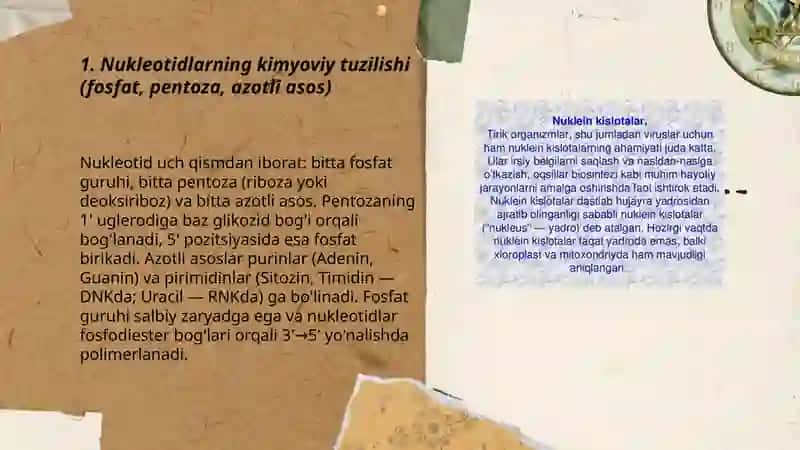 1. Nukleotidlarning kimyoviy tuzilishi
(fosfat, pentoza, azotli asos)
Nukleotid uch qismdan iborat: bitta fosfat
guruhi, bitta pentoza (riboza yoki
deoksiriboz) va bitta azotli asos. Pentozaning
1' uglerodiga baz glikozid bog'i orqali
bog'lanadi, 5' pozitsiyasida esa fosfat
birikadi. Azotli asoslar purinlar (Adenin,
Guanin) va pirimidinlar (Sitozin, Timidin —
DNKda; Uracil — RNKda) ga bo'linadi. Fosfat
guruhi salbiy zaryadga ega va nukleotidlar
fosfodiester bog'lari orqali 3'→5' yo'nalishda
polimerlanadi.
Nuklein kislotalar.
Tirik organizmlar, shu jumladan viruslar uchun
ham nuklein kislotalarning ahamiyati juda katta.
Ular irsiy belgilarni saqlash va nasldan-naslga
o'tkazish, oqsillar biosintezi kabi muhim hayoliy
jarayonlarni amalga oshirishda faol ishtirok etadi.
Nuklein kislotalar dastlab hujayra yadrosidan
ajratib olinganligi sababli nuklein kislotalar
("nukleus" — yadro) deb atalgan. Hozirgi vaqtda
nuklein kislotalar faqat yadroda emas, balki
xloroplast va mitoxondriyda ham mavjudligi
aniqlangan.